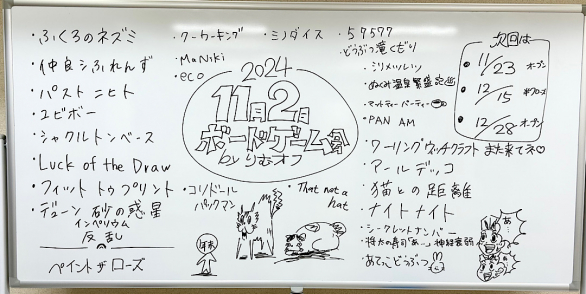 ・ふくろのネズミ
・仲良シふれんず
・パスト ニヒト
・ユビボー
・シャクルトンベース
・Luck of the Draw
・フィット トゥ プリント
・デューン 砂の惑星
インペリウム
反乱
ペイント ザ ローズ
・クーカーキング
・MaNiki
・eco
・ミノダイス
2024
11月2日
ボードゲーム会
by りむオフ
・コリドール
パックマン
・That not a
hat
・57577
・どうぶつ滝くだり
・シリメツレツ
・ぬくみ温泉繁盛記
・マッドティーパーティー
・PAN AM
・ワーリングウィッチクラフト
・アールデッコ
・猫との距離
・ナイトナイト
・シークレットナンバー
・将太の寿司「あ…」神経衰弱
・あてっこどうぶつ
次回は
11/23 オープン
12/15
12/28 オープン
また来てネ♡
あ…